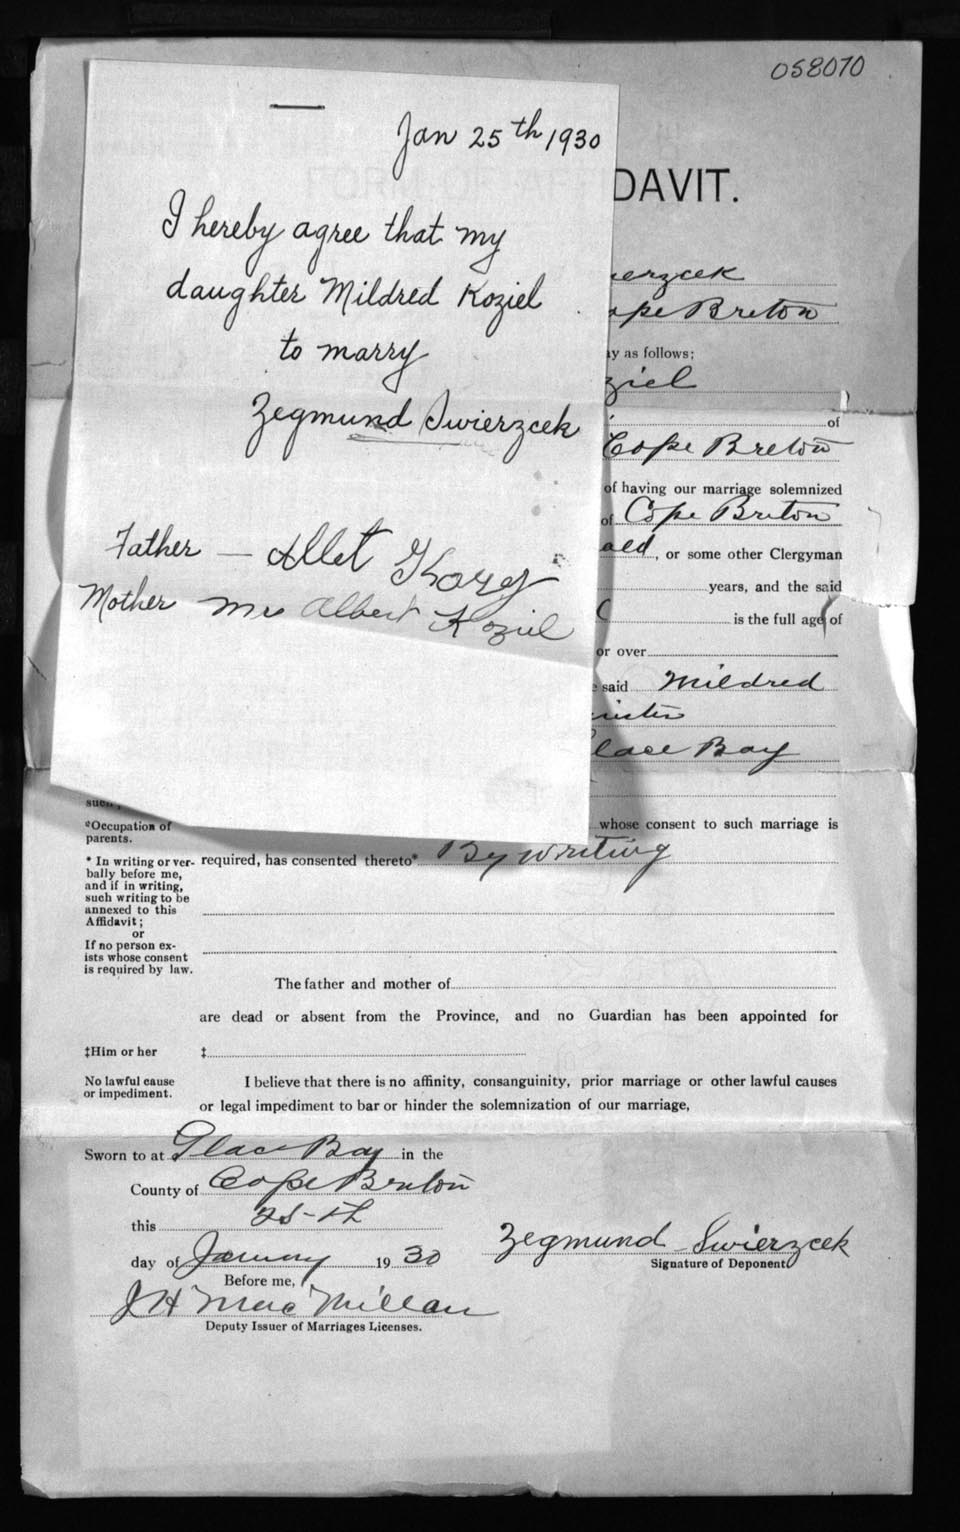 058070
Jan 25th 1930
I hereby agree that my
daughter Mildred Koziel
to marry
Zegmund Swierzcek
Father —
Mother Mrs Albert Koziel
DAVIT.
ierzcek
ape Breton
ay as follows;
ziel
of
Cape Breton
of having our marriage solemnized
of Cape Breton
ald, or some other Clergyman
years, and the said
is the full age of
or over
said Mildred
lace Bay
such;
*Occupation of
parents.
whose consent to such marriage is
required, has consented thereto* By writing
* In writing or ver-
bally before me,
and if in writing,
such writing to be
annexed to this
Affidavit;
or
If no person ex-
ists whose consent
is required by law.
The father and mother of
are dead or absent from the Province, and no Guardian has been appointed for
‡Him or her ‡
No lawful cause
or impediment.
I believe that there is no affinity, consanguinity, prior marriage or other lawful causes
or legal impediment to bar or hinder the solemnization of our marriage,
Sworn to at Glace Bay in the
County of Cape Breton
this 25th
day of January 1930
Before me,
J H MacMillan
Deputy Issuer of Marriages Licenses.
Zegmund Swierzcek
Signature of Deponent